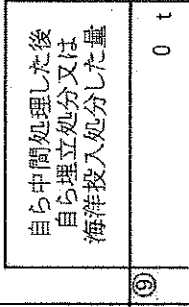 自ら中間処理した後
自ら埋立処分又は
海洋投入処分した量
⑨
0 t